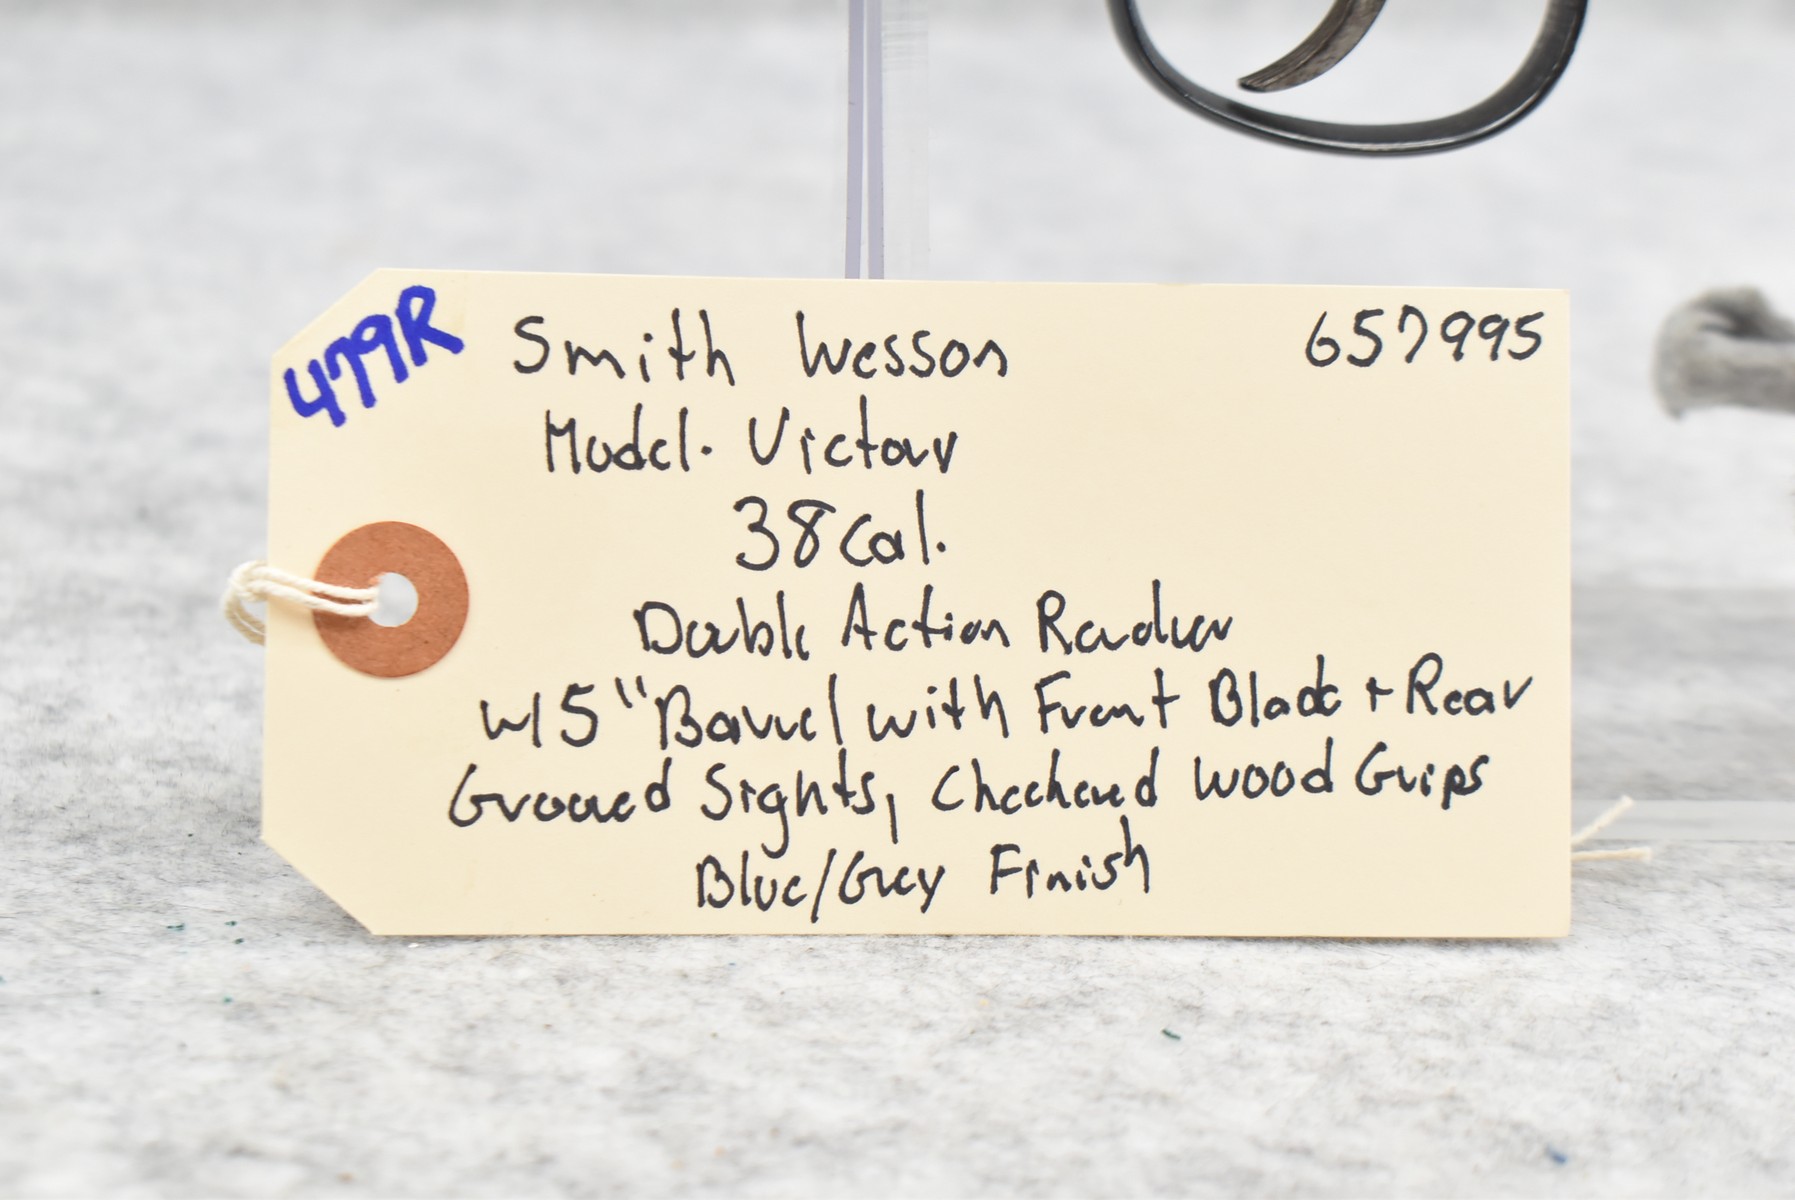 479R
Smith Wesson 657995
Model. Victory
38 Cal.
Double Action Revolver
w/ 5" Barrel with Front Blade + Rear
Grooved Sights, Checkered Wood Grips
Blue/Grey Finish